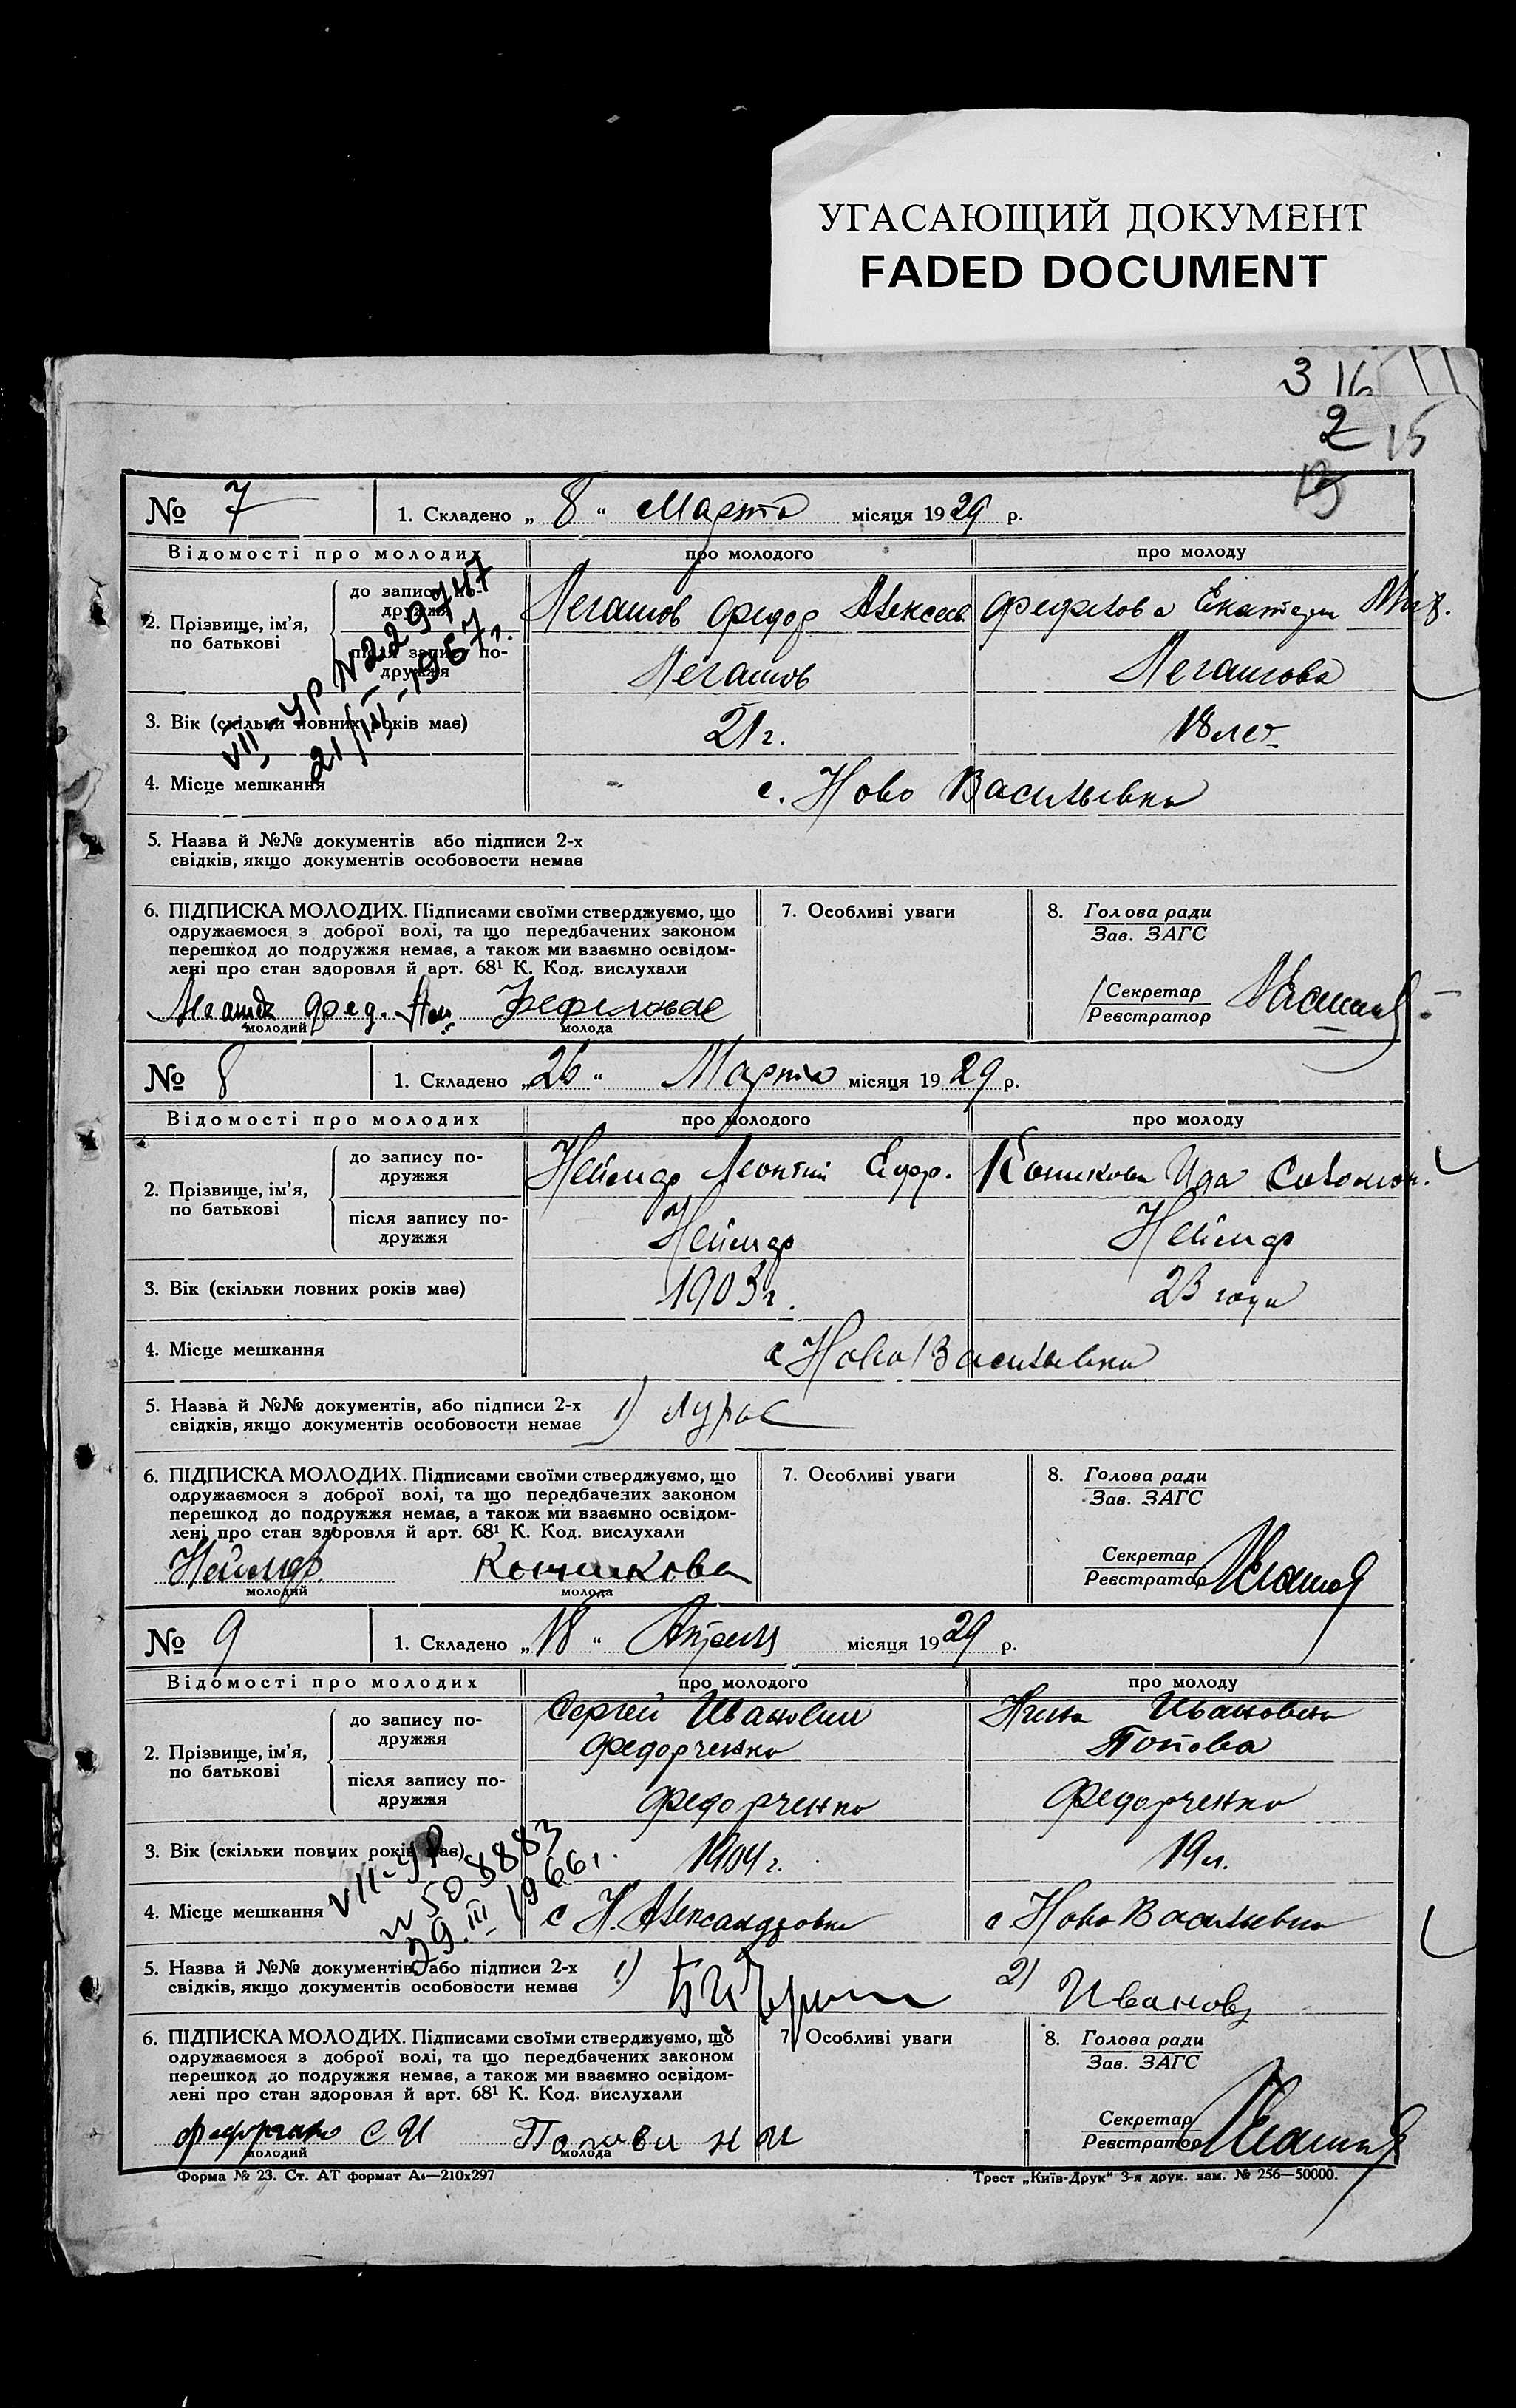 УГАСАЮЩИЙ ДОКУМЕНТ
FADED DOCUMENT
3 16
2 15
№ 7 1. Складено „ 8 “ Марта місяця 1929 р.
Відомості про молодих про молодого про молоду
2. Прізвище, ім’я, по батькові
до запису подружжя Легашов Федор Алексеев. Фефелова Екатери
після запису подружжя Легашов Легашова
3. Вік (скільки повних років має) 21 г. 18 лет
4. Місце мешкання с. Ново Васильевка
VII-УР N 229747
21/III-1967 г.
5. Назва й №№ документів або підписи 2-х
свідків, якщо документів особовости немає
6. ПІДПИСКА МОЛОДИХ. Підписами своїми стверджуємо, що
одружаємося з доброї волі, та що передбачених законом
перешкод до подружжя немає, а також ми взаємно освідом-
лені про стан здоровля й арт. 68¹ К. Код. вислухали
Фефелова
молодий молода
7. Особливі уваги
8. Голова ради
Зав. ЗАГС
Секретар
Реєстратор
№ 8 1. Складено „26“ Марта місяця 1929 р.
Відомості про молодих про молодого про молоду
2. Прізвище, ім’я, по батькові
до запису подружжя Леонтий Ефр. Конникова Ида Соломон.
після запису подружжя
3. Вік (скільки повних років має) 1903 г. 23 года
4. Місце мешкання с Ново Васильевка
5. Назва й №№ документів, або підписи 2-х 1)
свідків, якщо документів особовости немає
6. ПІДПИСКА МОЛОДИХ. Підписами своїми стверджуємо, що
одружаємося з доброї волі, та що передбачених законом
перешкод до подружжя немає, а також ми взаємно освідом-
лені про стан здоровля й арт. 68¹ К. Код. вислухали
Конникова
молодий молода
7. Особливі уваги
8. Голова ради
Зав. ЗАГС
Секретар
Реєстратор Легашов
№ 9 1. Складено „18“ Апреля місяця 1929 р.
Відомості про молодих про молодого про молоду
2. Прізвище, ім’я, по батькові
до запису подружжя Сергей Иванович Нина Ивановна
Федорченко Попова
після запису подружжя Федорченко Федорченко
3. Вік (скільки повних років має) 1904 г. 19 л.
4. Місце мешкання с Н. Александровка с. Ново Васильевка
VII-УР
N 508883
29.III-1966 г.
5. Назва й №№ документів, або підписи 2-х 1) 2) Иванов
свідків, якщо документів особовости немає
6. ПІДПИСКА МОЛОДИХ. Підписами своїми стверджуємо, що
одружаємося з доброї волі, та що передбачених законом
перешкод до подружжя немає, а також ми взаємно освідом-
лені про стан здоровля й арт. 68¹ К. Код. вислухали
Федорченко С И Попова Н И
молодий молода
7. Особливі уваги
8. Голова ради
Зав. ЗАГС
Секретар
Реєстратор Легашов
Форма № 23. Ст. АТ формат А₄—210x297 Трест „Київ-Друк“ 3-я друк. зам. № 256—50000.